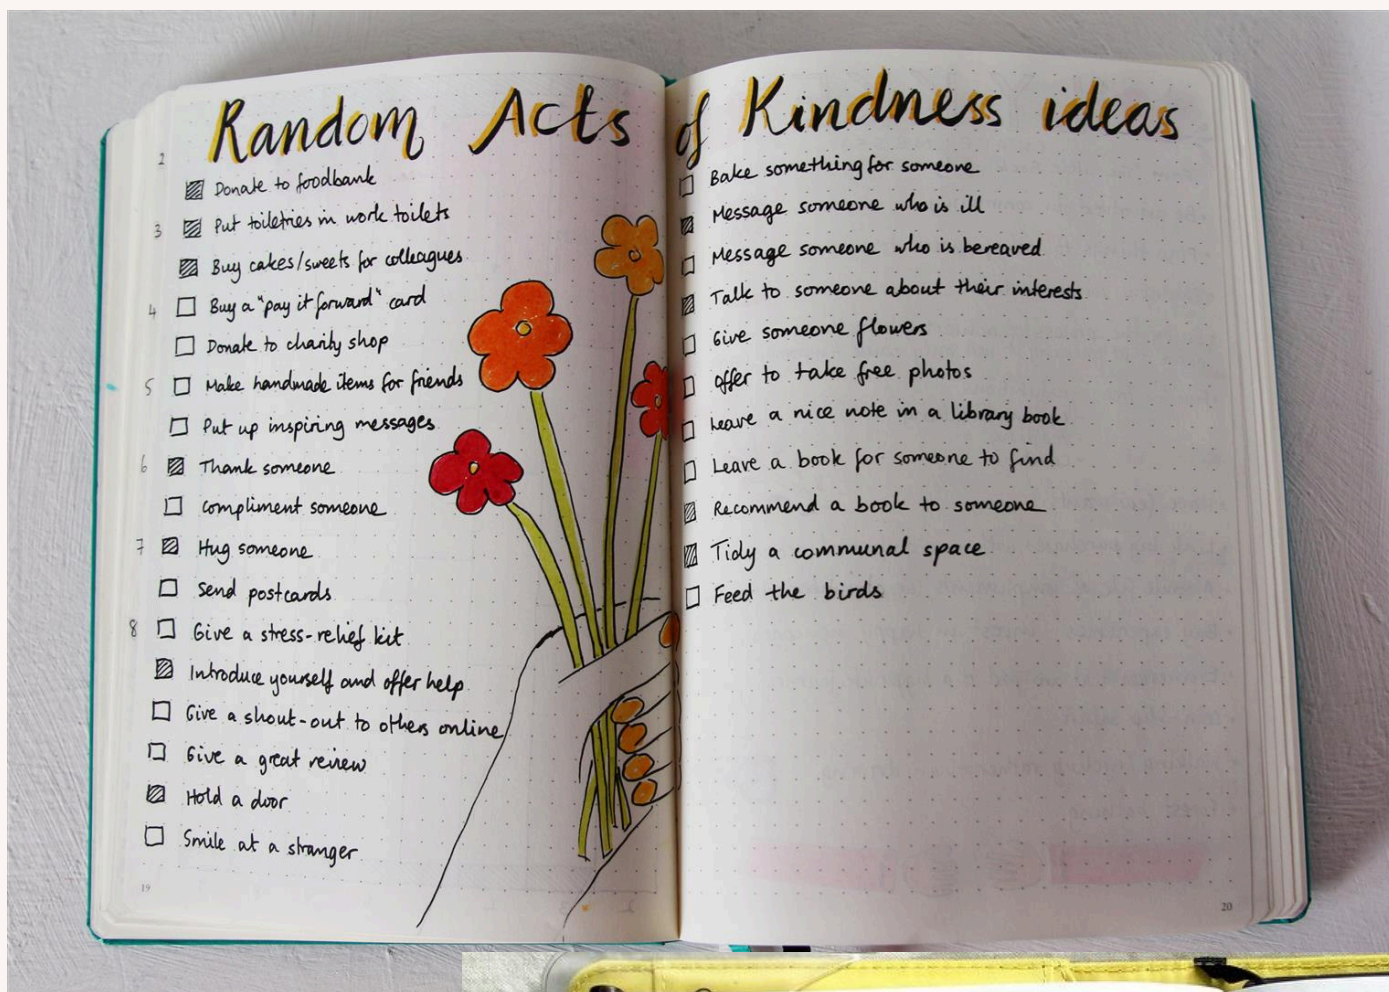 Random Acts of Kindness ideas
2
Donate to foodbank
3
Put toiletries in work toilets
Buy cakes/sweets for colleagues
4
Buy a "pay it forward" card
Donate to charity shop
5
Make handmade items for friends
Put up inspiring messages
6
Thank someone
compliment someone
7
Hug someone
Send postcards
8
Give a stress-relief kit
Introduce yourself and offer help
Give a shout-out to others online
Give a great review
Hold a door
Smile at a stranger
19
Bake something for someone
Message someone who is ill
Message someone who is bereaved
Talk to someone about their interests
Give someone flowers
offer to take free photos
Leave a nice note in a library book
Leave a book for someone to find
Recommend a book to someone
Tidy a communal space
Feed the birds
20